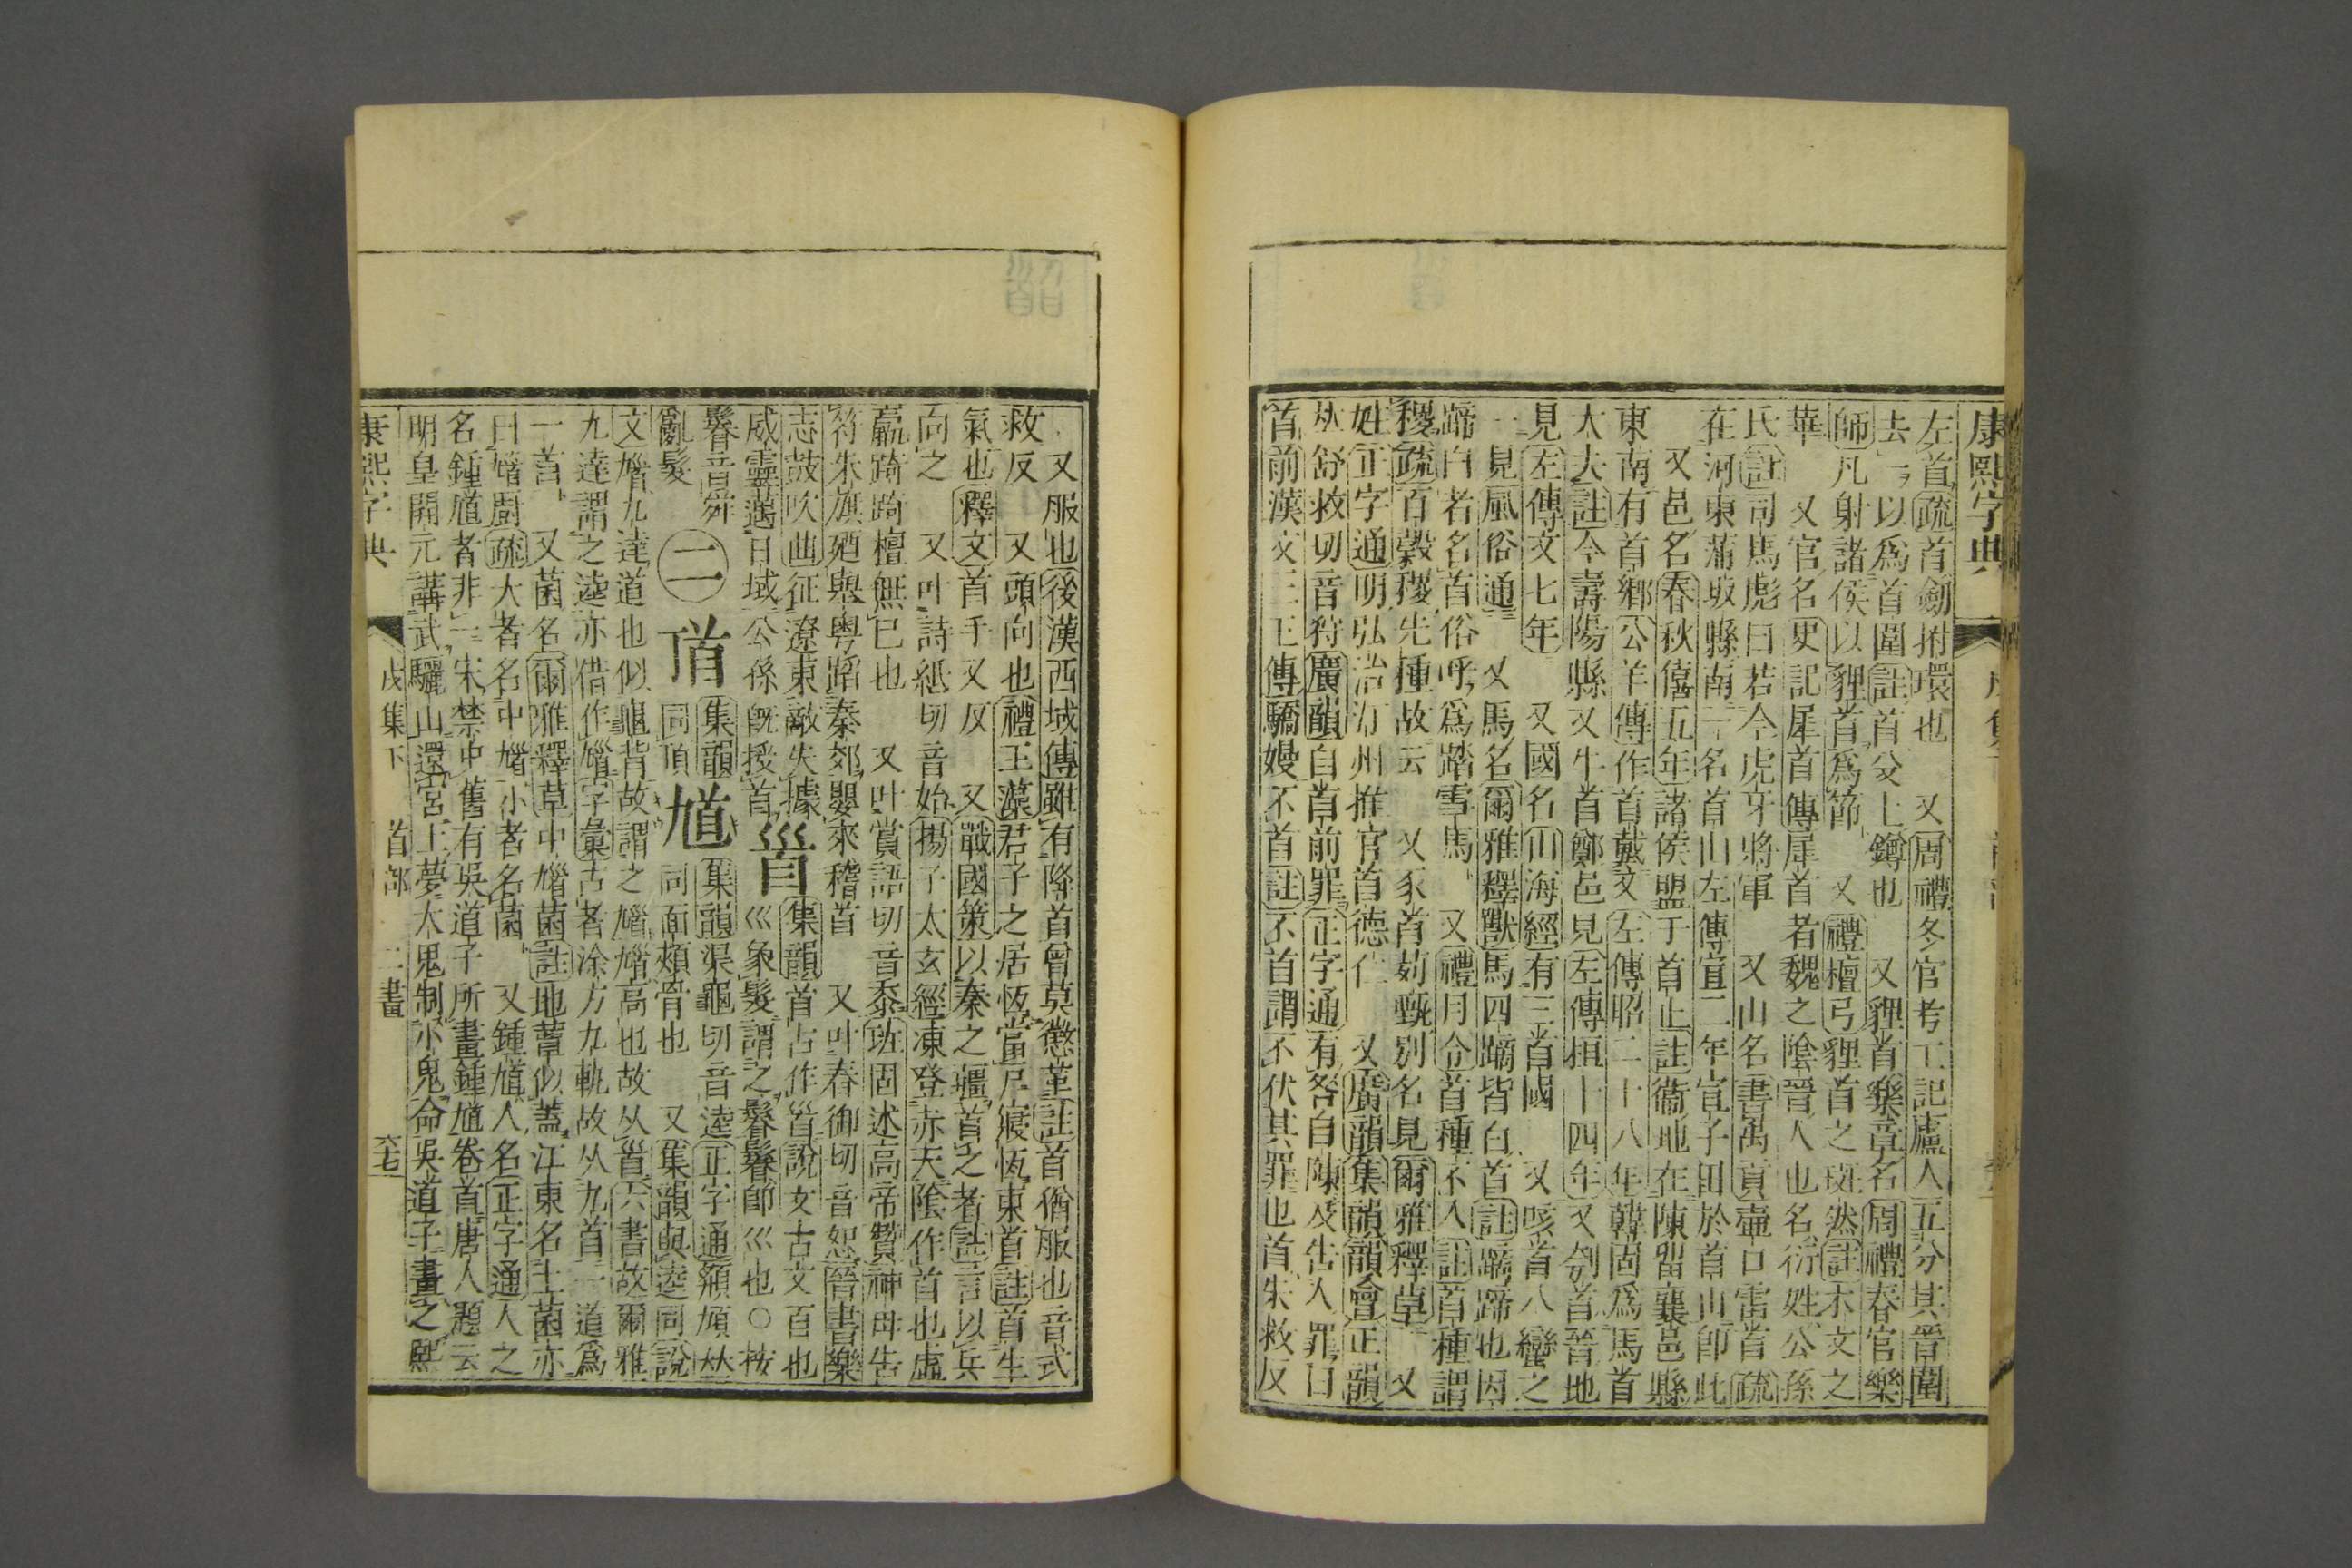 康熙字典
左首疏首劒拊環也　又周禮冬官考工記廬人五分其晉圍
去一以爲首圍註首殳上鐏也　又貍首樂章名周禮春官樂
師凡射諸侯以貍首爲節　又禮檀弓貍首之斑然註木文之
華　又官名史記犀首傳犀首者魏之陰晉人也名衍姓公孫
氏註司馬彪曰若今虎牙將軍　又山名書禹貢壷口雷首疏
在河東蒲坂縣南一名首山左傳宣二年宣子田於首山卽此
又邑名春秋僖五年諸侯盟于首止註衞地在陳留襄邑縣
東南有首鄕公羊傳作首戴　又左傳昭二十八年韓固爲馬首
大夫註今壽陽縣　又牛首鄭邑見左傳桓十四年　又刳首晉地
見左傳文七年　又國名山海經有三首國　又咳首八蠻之
一見風俗通　又馬名爾雅釋獸馬四蹢皆白首註蹢蹄也因
蹄白者名首俗呼爲踏雪馬　又禮月令首種不入註首種謂
稷疏百穀稷先種故云　又豕首茢甄別名見爾雅釋草　又
姓正字通明弘治汀州推官首德仁　又廣韻集韻韻會正韻
𠀤舒救切音狩廣韻自首前罪正字通有咎自陳及告人罪曰
首前漢文三王傳驕嫚不首註不首謂不伏其罪也首失救反
又服也後漢西域傳雖有降首曾莫懲革註首猶服也音式
救反　又頭向也禮玉藻君子之居恆當戸寢恆東首註首生
氣也釋文首手又反　又戰國策以秦之疆首之者註言以兵
向之　又叶詩紙切音始揚子太玄經凍登赤天陰作首也虛
羸踦踦檀無已也　又叶賞語切音黍班固述高帝贊神母告
符朱旗廼舉粵蹈秦郊嬰來稽首　又叶舂御切音恕晉書樂
志鼓吹曲征遼東敵失據威靈邁日域公孫旣授首
𩠐集韻首古作𩠐說文古文百也
巛象髮謂之鬊鬊卽巛也○按
鬊音舜
亂髮
二
𩠑集韻
同頂
馗集韻渠龜切音逵正字通頯頄𠀤
同面頰骨也　又集韻與逵同說
文馗九達道也似龜背故謂之馗馗高也故从𩠐六書故爾雅
九達謂之逵亦借作馗字彙古者涂方九軌故从九首一道爲
一首　又菌名爾雅釋草中馗菌註地蕈似蓋江東名土菌亦
曰馗廚疏大者名中馗小者名菌　又鍾馗人名正字通人之
名鍾馗者非一宋禁中舊有吳道子所畫鍾馗卷首唐人題云
明皇開元講武驪山還宮上夢大鬼制小鬼命吳道子畫之熙
康熙字典
戌集下　首部　二畫
六七